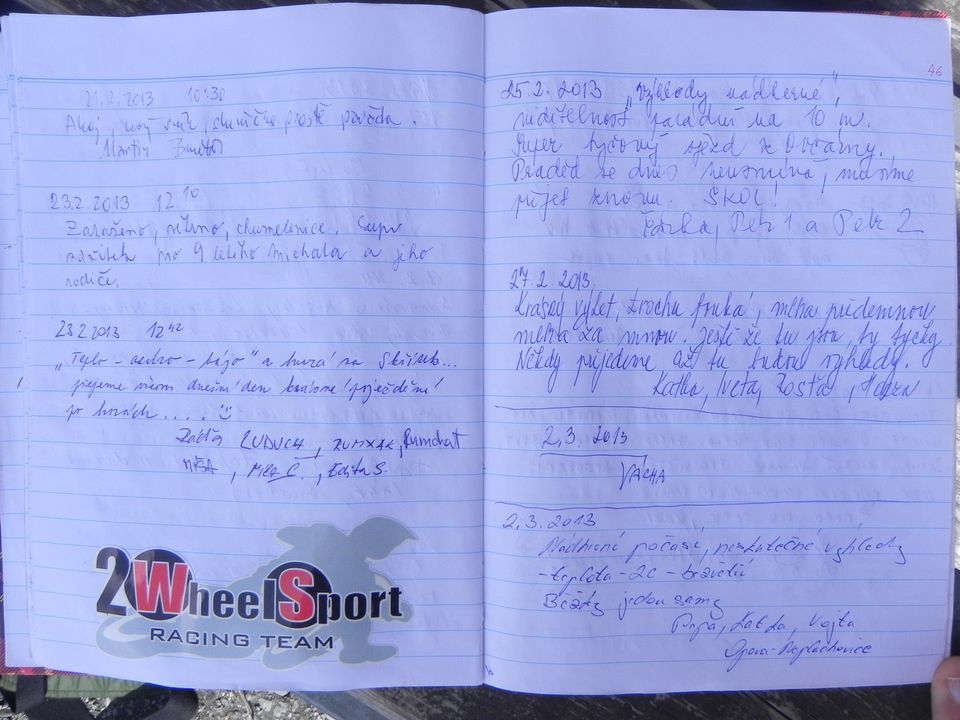 21.2.2013 10:30
Ahoj, nový sníh, sluníčko prostě paráda.
Martin
23.2.2013 12 10
Zataženo, větrno, chumelenice. Super
zážitek pro 9 letého Michala a jeho
rodiče.
23.2.2013 12 42
"Teplo - - " a hurá na Skřítek...
přejeme všem dnešní den krásné pojezdění
po horách .....
ZUMXAK, Rumchat
MÍŠA, , Edita S.
2WheelSport
RACING TEAM
46
25.2.2013 "Výhledy nádherné",
viditelnost parádní na 10 m.
Super tyčový sjezd z Ovčárny.
Praděd se dnes neusmívá, musíme
přijet znovu. SKOL!
Šárka, Petr 1 a Petr 2
27.2.2013
Krásný výlet, trochu fouká, mlha předemnou
mlha za mnou. Ještě že tu jsou ty tyčky.
Někdy přijedeme až tu budou výhledy.
Katka, Iveta,
2.3.2013
VÁCHA
2.3.2013
Nádherné počasí, neskutečné výhledy
- teplota - 2C - bezvětří
Běžky jedou samy
Pepa, , Vojta
Opava-Kylešovice